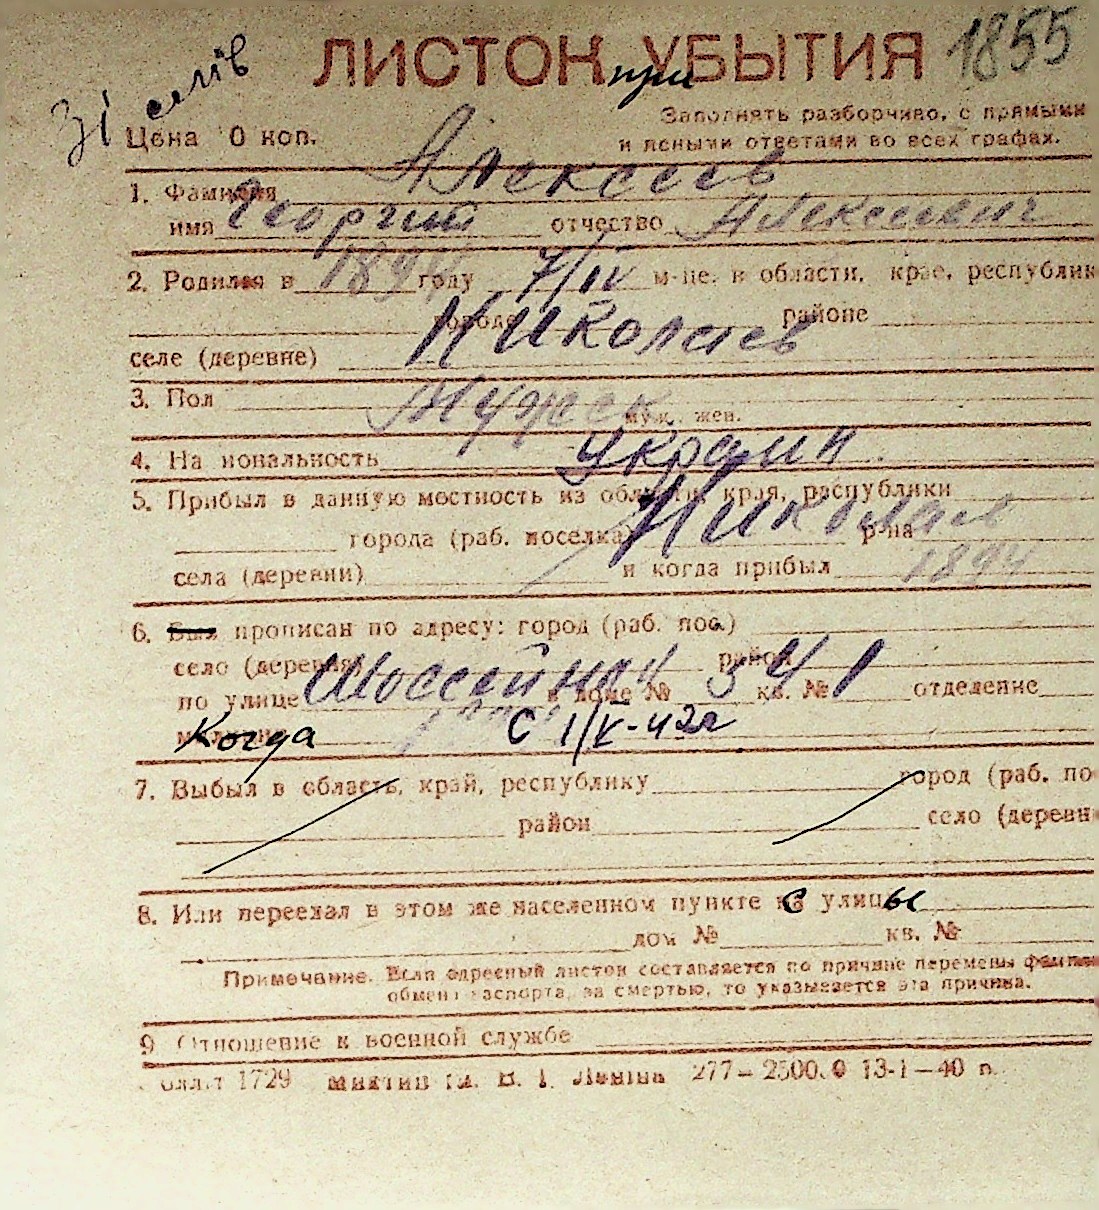 Зі селів
ЛИСТОК при УБЫТИЯ 1855
Цена 0 коп.
Заполнять разборчиво, с прямыми
и ясными ответами во всех графах.
1. Фамилия Алексеев
имя Георгий отчество Алексеевич
2. Родился в 1894 году 7/IV м-це, в области, крае, республик
городе Николаев районе
селе (деревне)
3. Пол Мужск муж. жен.
4. На иональность Украин.
5. Прибыл в данную местность из области края, республики
города (раб. поселка) Николаев р-на
села (деревни) и когда прибыл 1894
6. Был прописан по адресу: город (раб. пос.)
село (деревня) район
по улице Шоссейная в доме № 54 кв. № 1 отделение
Когда с 1/V-42г
7. Выбыл в область, край, республику город (раб. по
район село (деревн
8. Или переехал в этом же населенном пункте с улицы
дом № кв. №
Примечание. Если адресный листок составляется по причине перемены фамили
обмен паспорта, за смертью, то указывается эта причина.
9 Отношение к военной службе
1729 277–2500.0 13-1–40 г.